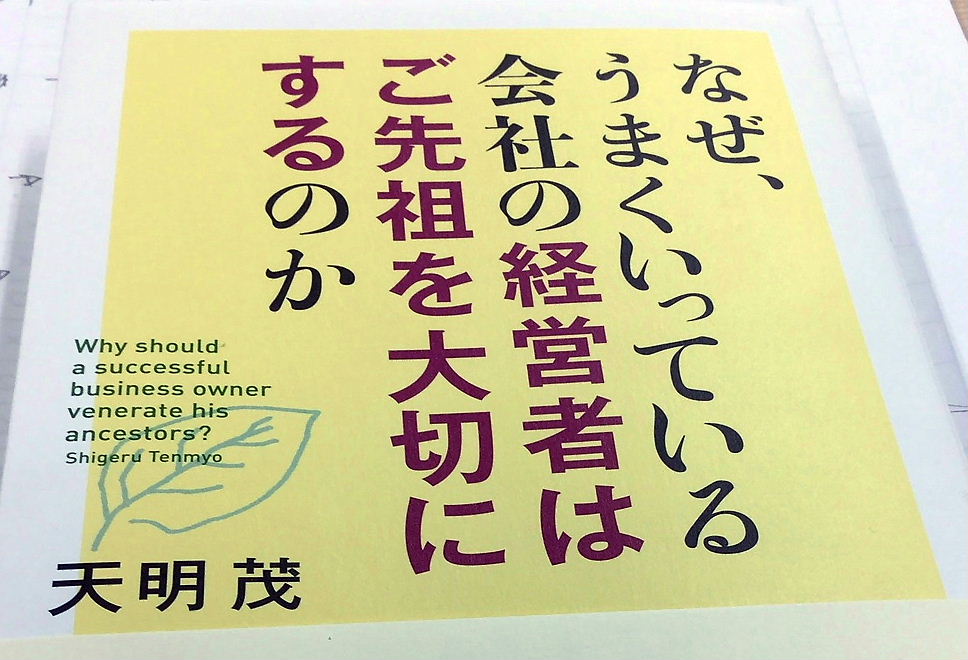 なぜ、
うまくいっている
会社の経営者は
ご先祖を大切に
するのか
Why should
a successful
business owner
venerate his
ancestors?
Shigeru Tenmyo
天明 茂